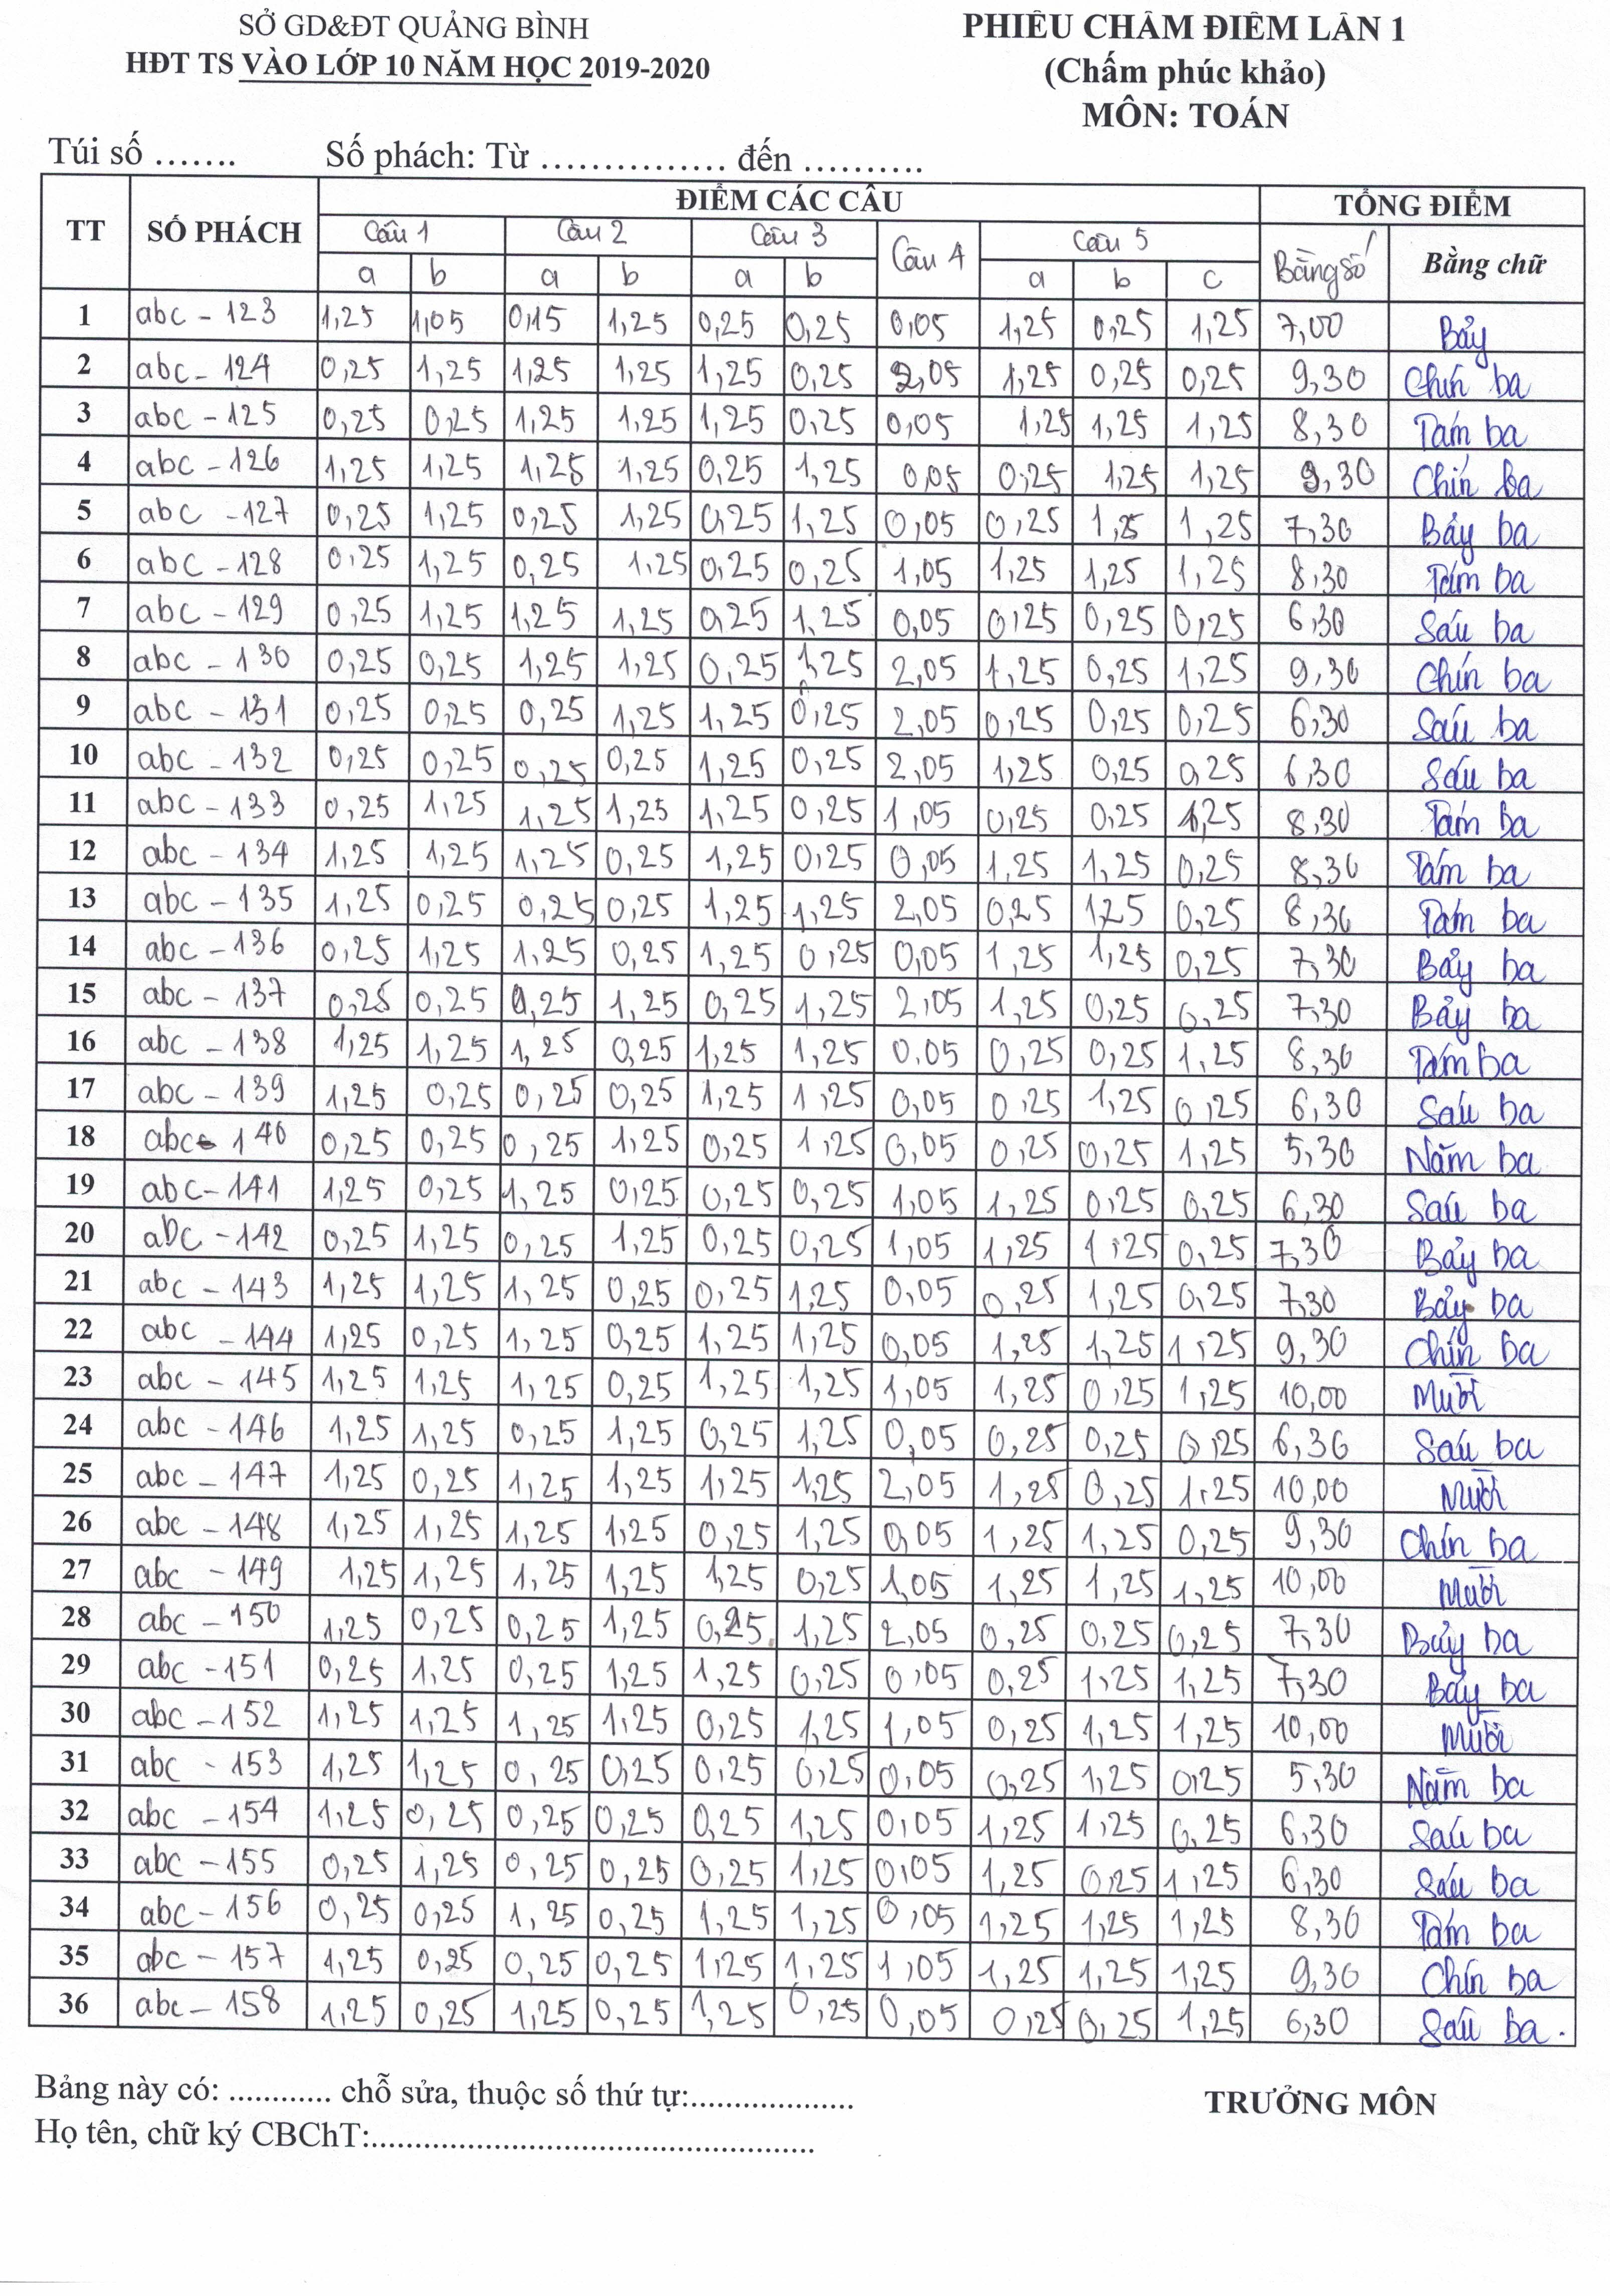 SỞ GD&ĐT QUẢNG BÌNH
HĐT TS VÀO LỚP 10 NĂM HỌC 2019-2020
PHIẾU CHẤM ĐIỂM LẦN 1
(Chấm phúc khảo)
MÔN: TOÁN
Túi số ....... Số phách: Từ ............... đến ..........
TT SỐ PHÁCH ĐIỂM CÁC CÂU TỔNG ĐIỂM
Câu 1 Câu 2 Câu 3 Câu 4 Câu 5 Bằng số Bằng chữ
a b a b a b a b c
1 abc - 123 1,25 1,05 0,15 1,25 0,25 0,25 0,05 1,25 0,25 1,25 7,00 Bảy
2 abc - 124 0,25 1,25 1,25 1,25 1,25 0,25 2,05 1,25 0,25 0,25 9,30 Chín ba
3 abc - 125 0,25 0,25 1,25 1,25 1,25 0,25 0,05 1,25 1,25 1,25 8,30 Tám ba
4 abc - 126 1,25 1,25 1,25 1,25 0,25 1,25 0,05 0,25 1,25 1,25 9,30 Chín ba
5 abc - 127 0,25 1,25 0,25 1,25 0,25 1,25 0,05 0,25 1,25 1,25 7,30 Bảy ba
6 abc - 128 0,25 1,25 0,25 1,25 0,25 0,25 1,05 1,25 1,25 1,25 8,30 Tám ba
7 abc - 129 0,25 1,25 1,25 1,25 0,25 1,25 0,05 0,25 0,25 0,25 6,30 Sáu ba
8 abc - 130 0,25 0,25 1,25 1,25 0,25 1,25 2,05 1,25 0,25 1,25 9,30 Chín ba
9 abc - 131 0,25 0,25 0,25 1,25 1,25 0,25 2,05 0,25 0,25 0,25 6,30 Sáu ba
10 abc - 132 0,25 0,25 0,25 0,25 1,25 0,25 2,05 1,25 0,25 0,25 6,30 Sáu ba
11 abc - 133 0,25 1,25 1,25 1,25 1,25 0,25 1,05 0,25 0,25 1,25 8,30 Tám ba
12 abc - 134 1,25 1,25 1,25 0,25 1,25 0,25 0,05 1,25 1,25 0,25 8,30 Tám ba
13 abc - 135 1,25 0,25 0,25 0,25 1,25 1,25 2,05 0,25 1,25 0,25 8,30 Tám ba
14 abc - 136 0,25 1,25 1,25 0,25 1,25 0,25 0,05 1,25 1,25 0,25 7,30 Bảy ba
15 abc - 137 0,25 0,25 0,25 1,25 0,25 1,25 2,05 1,25 0,25 0,25 7,30 Bảy ba
16 abc - 138 1,25 1,25 1,25 0,25 1,25 1,25 0,05 0,25 0,25 1,25 8,30 Tám ba
17 abc - 139 1,25 0,25 0,25 0,25 1,25 1,25 0,05 0,25 1,25 0,25 6,30 Sáu ba
18 abc - 140 0,25 0,25 0,25 1,25 0,25 1,25 0,05 0,25 0,25 1,25 5,30 Năm ba
19 abc - 141 1,25 0,25 1,25 0,25 0,25 0,25 1,05 1,25 0,25 0,25 6,30 Sáu ba
20 abc - 142 0,25 1,25 0,25 1,25 0,25 0,25 1,05 1,25 1,25 0,25 7,30 Bảy ba
21 abc - 143 1,25 1,25 1,25 0,25 0,25 1,25 0,05 0,25 1,25 0,25 7,30 Bảy ba
22 abc - 144 1,25 0,25 1,25 0,25 1,25 1,25 0,05 1,25 1,25 1,25 9,30 Chín ba
23 abc - 145 1,25 1,25 1,25 0,25 1,25 1,25 1,05 1,25 0,25 1,25 10,00 Mười
24 abc - 146 1,25 1,25 0,25 1,25 0,25 1,25 0,05 0,25 0,25 0,25 6,30 Sáu ba
25 abc - 147 1,25 0,25 1,25 1,25 1,25 1,25 2,05 1,25 0,25 1,25 10,00 Mười
26 abc - 148 1,25 1,25 1,25 1,25 0,25 1,25 0,05 1,25 1,25 0,25 9,30 Chín ba
27 abc - 149 1,25 1,25 1,25 1,25 1,25 0,25 1,05 1,25 1,25 1,25 10,00 Mười
28 abc - 150 1,25 0,25 0,25 1,25 0,25 1,25 2,05 0,25 0,25 0,25 7,30 Bảy ba
29 abc - 151 0,25 1,25 0,25 1,25 1,25 0,25 0,05 0,25 1,25 1,25 7,30 Bảy ba
30 abc - 152 1,25 1,25 1,25 1,25 0,25 1,25 1,05 0,25 1,25 1,25 10,00 Mười
31 abc - 153 1,25 1,25 0,25 0,25 0,25 0,25 0,05 0,25 1,25 0,25 5,30 Năm ba
32 abc - 154 1,25 0,25 0,25 0,25 0,25 1,25 0,05 1,25 1,25 0,25 6,30 Sáu ba
33 abc - 155 0,25 1,25 0,25 0,25 0,25 1,25 0,05 1,25 0,25 1,25 6,30 Sáu ba
34 abc - 156 0,25 0,25 1,25 0,25 1,25 1,25 0,05 1,25 1,25 1,25 8,30 Tám ba
35 abc - 157 1,25 0,25 0,25 0,25 1,25 1,25 1,05 1,25 1,25 1,25 9,30 Chín ba
36 abc - 158 1,25 0,25 1,25 0,25 1,25 0,25 0,05 0,25 0,25 1,25 6,30 Sáu ba.
Bảng này có: ............ chỗ sửa, thuộc số thứ tự:...................
TRƯỞNG MÔN
Họ tên, chữ ký CBChT:...................................................